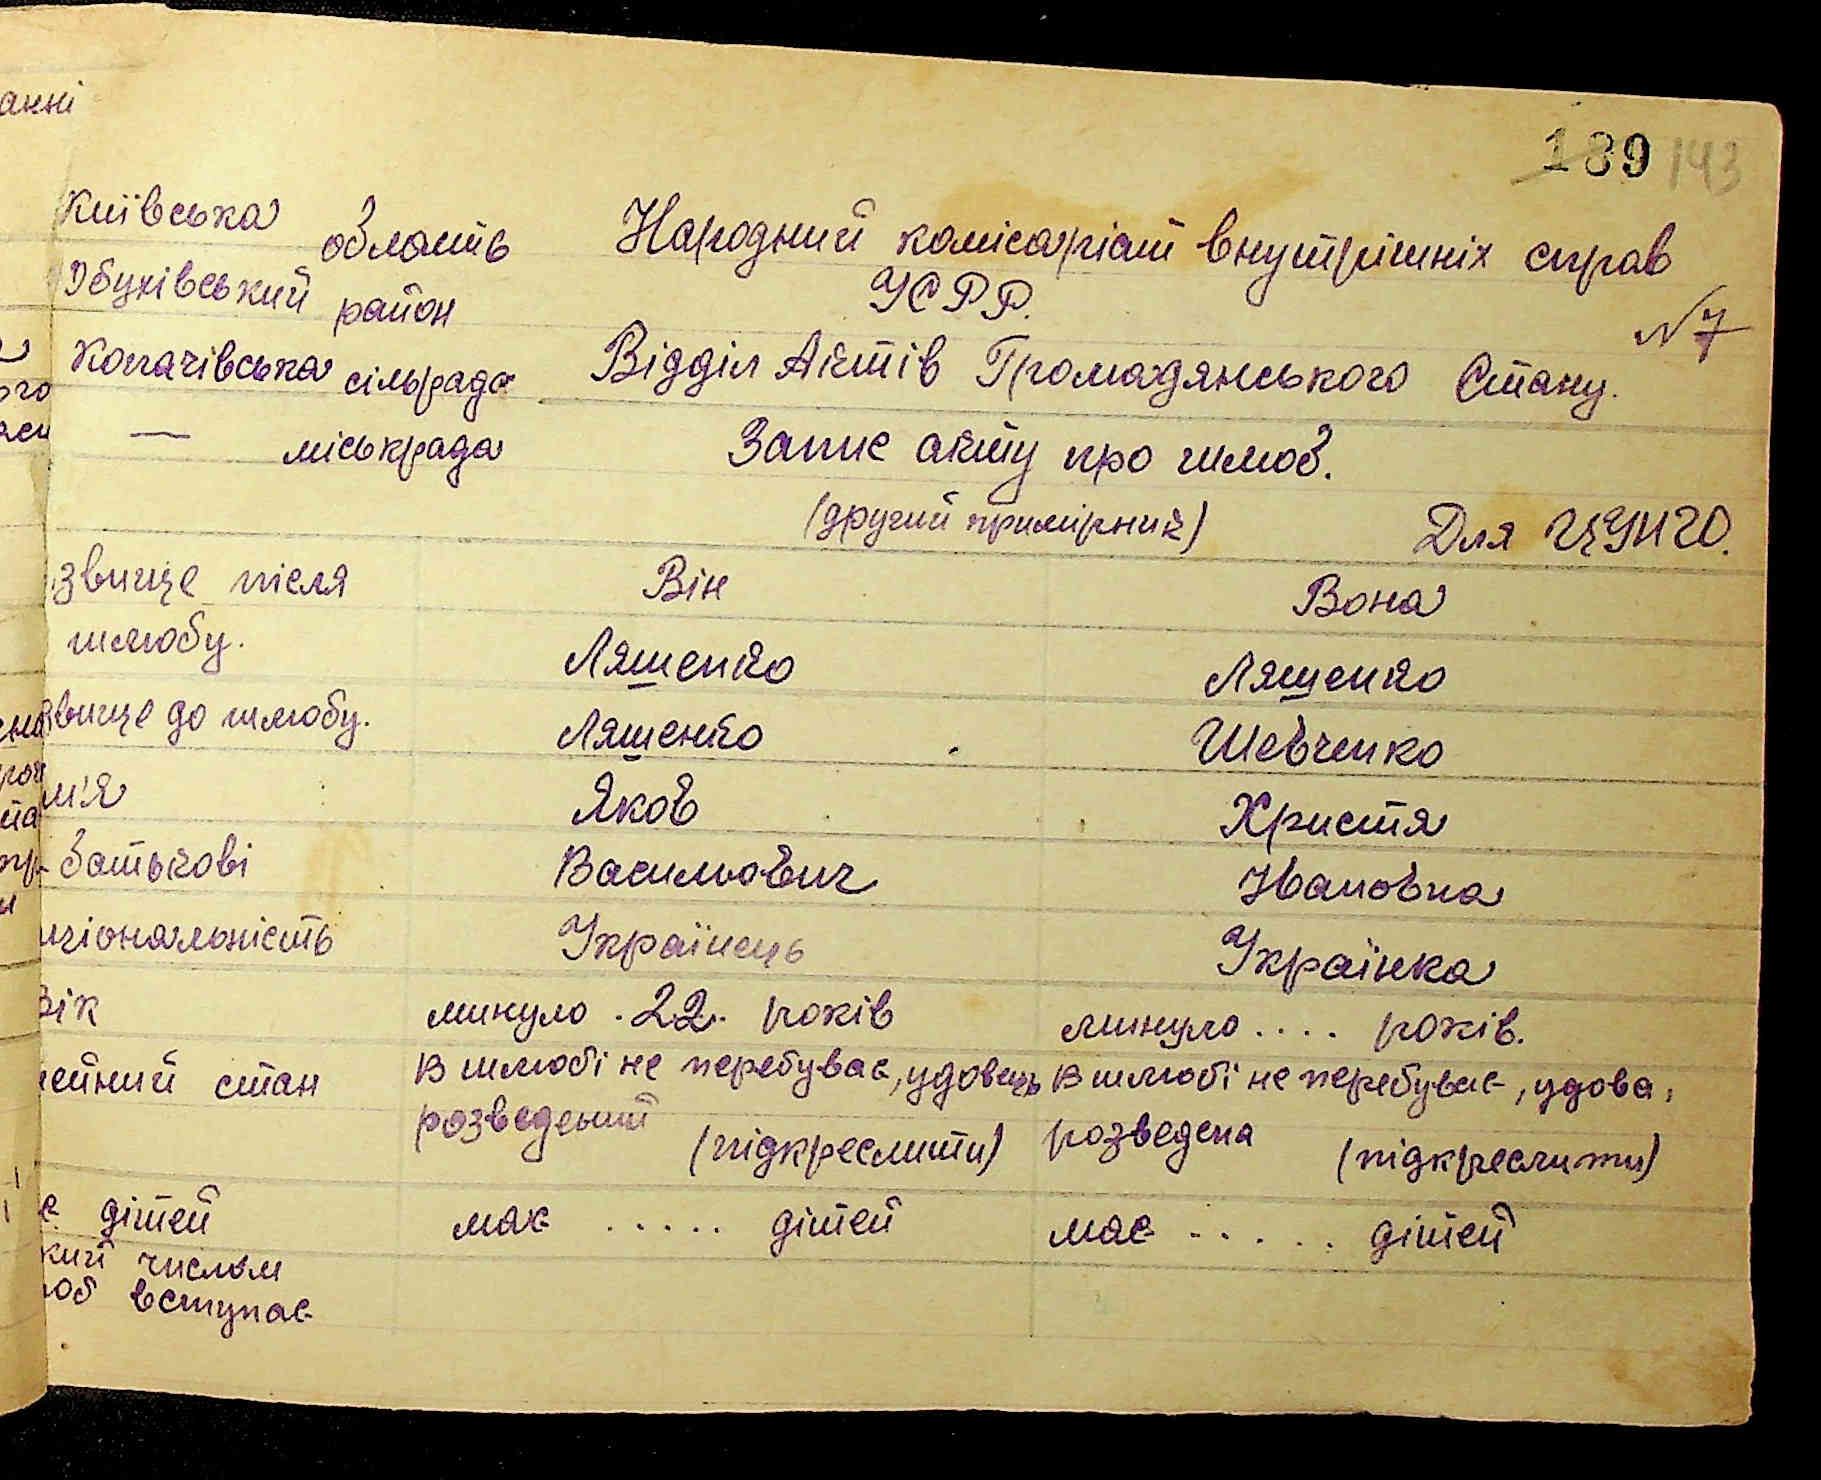 189 143
Київська область Народний комісаріат внутрішніх справ
Обухівський район УСРР.
N 7
Копачівська сільрада Відділ Актів Громадянського Стану.
— міськрада Запис акту про шлюб.
(другий примірник) Для ЦУНГО.
звище після Він Вона
шлюбу. Ляшенко Ляшенко
звище до шлюбу. Ляшенко Шевченко
м'я Яков Христя
батькові Васильович Ивановна
ціональність Українець Українка
Вік минуло .22. років минуло .... років.
ейний стан В шлюбі не перебуває, удовець В шлюбі не перебуває, удова,
розведений (підкреслити) розведена (підкреслити)
є дітей має ..... дітей має ..... дітей
кий числом
юб вступає